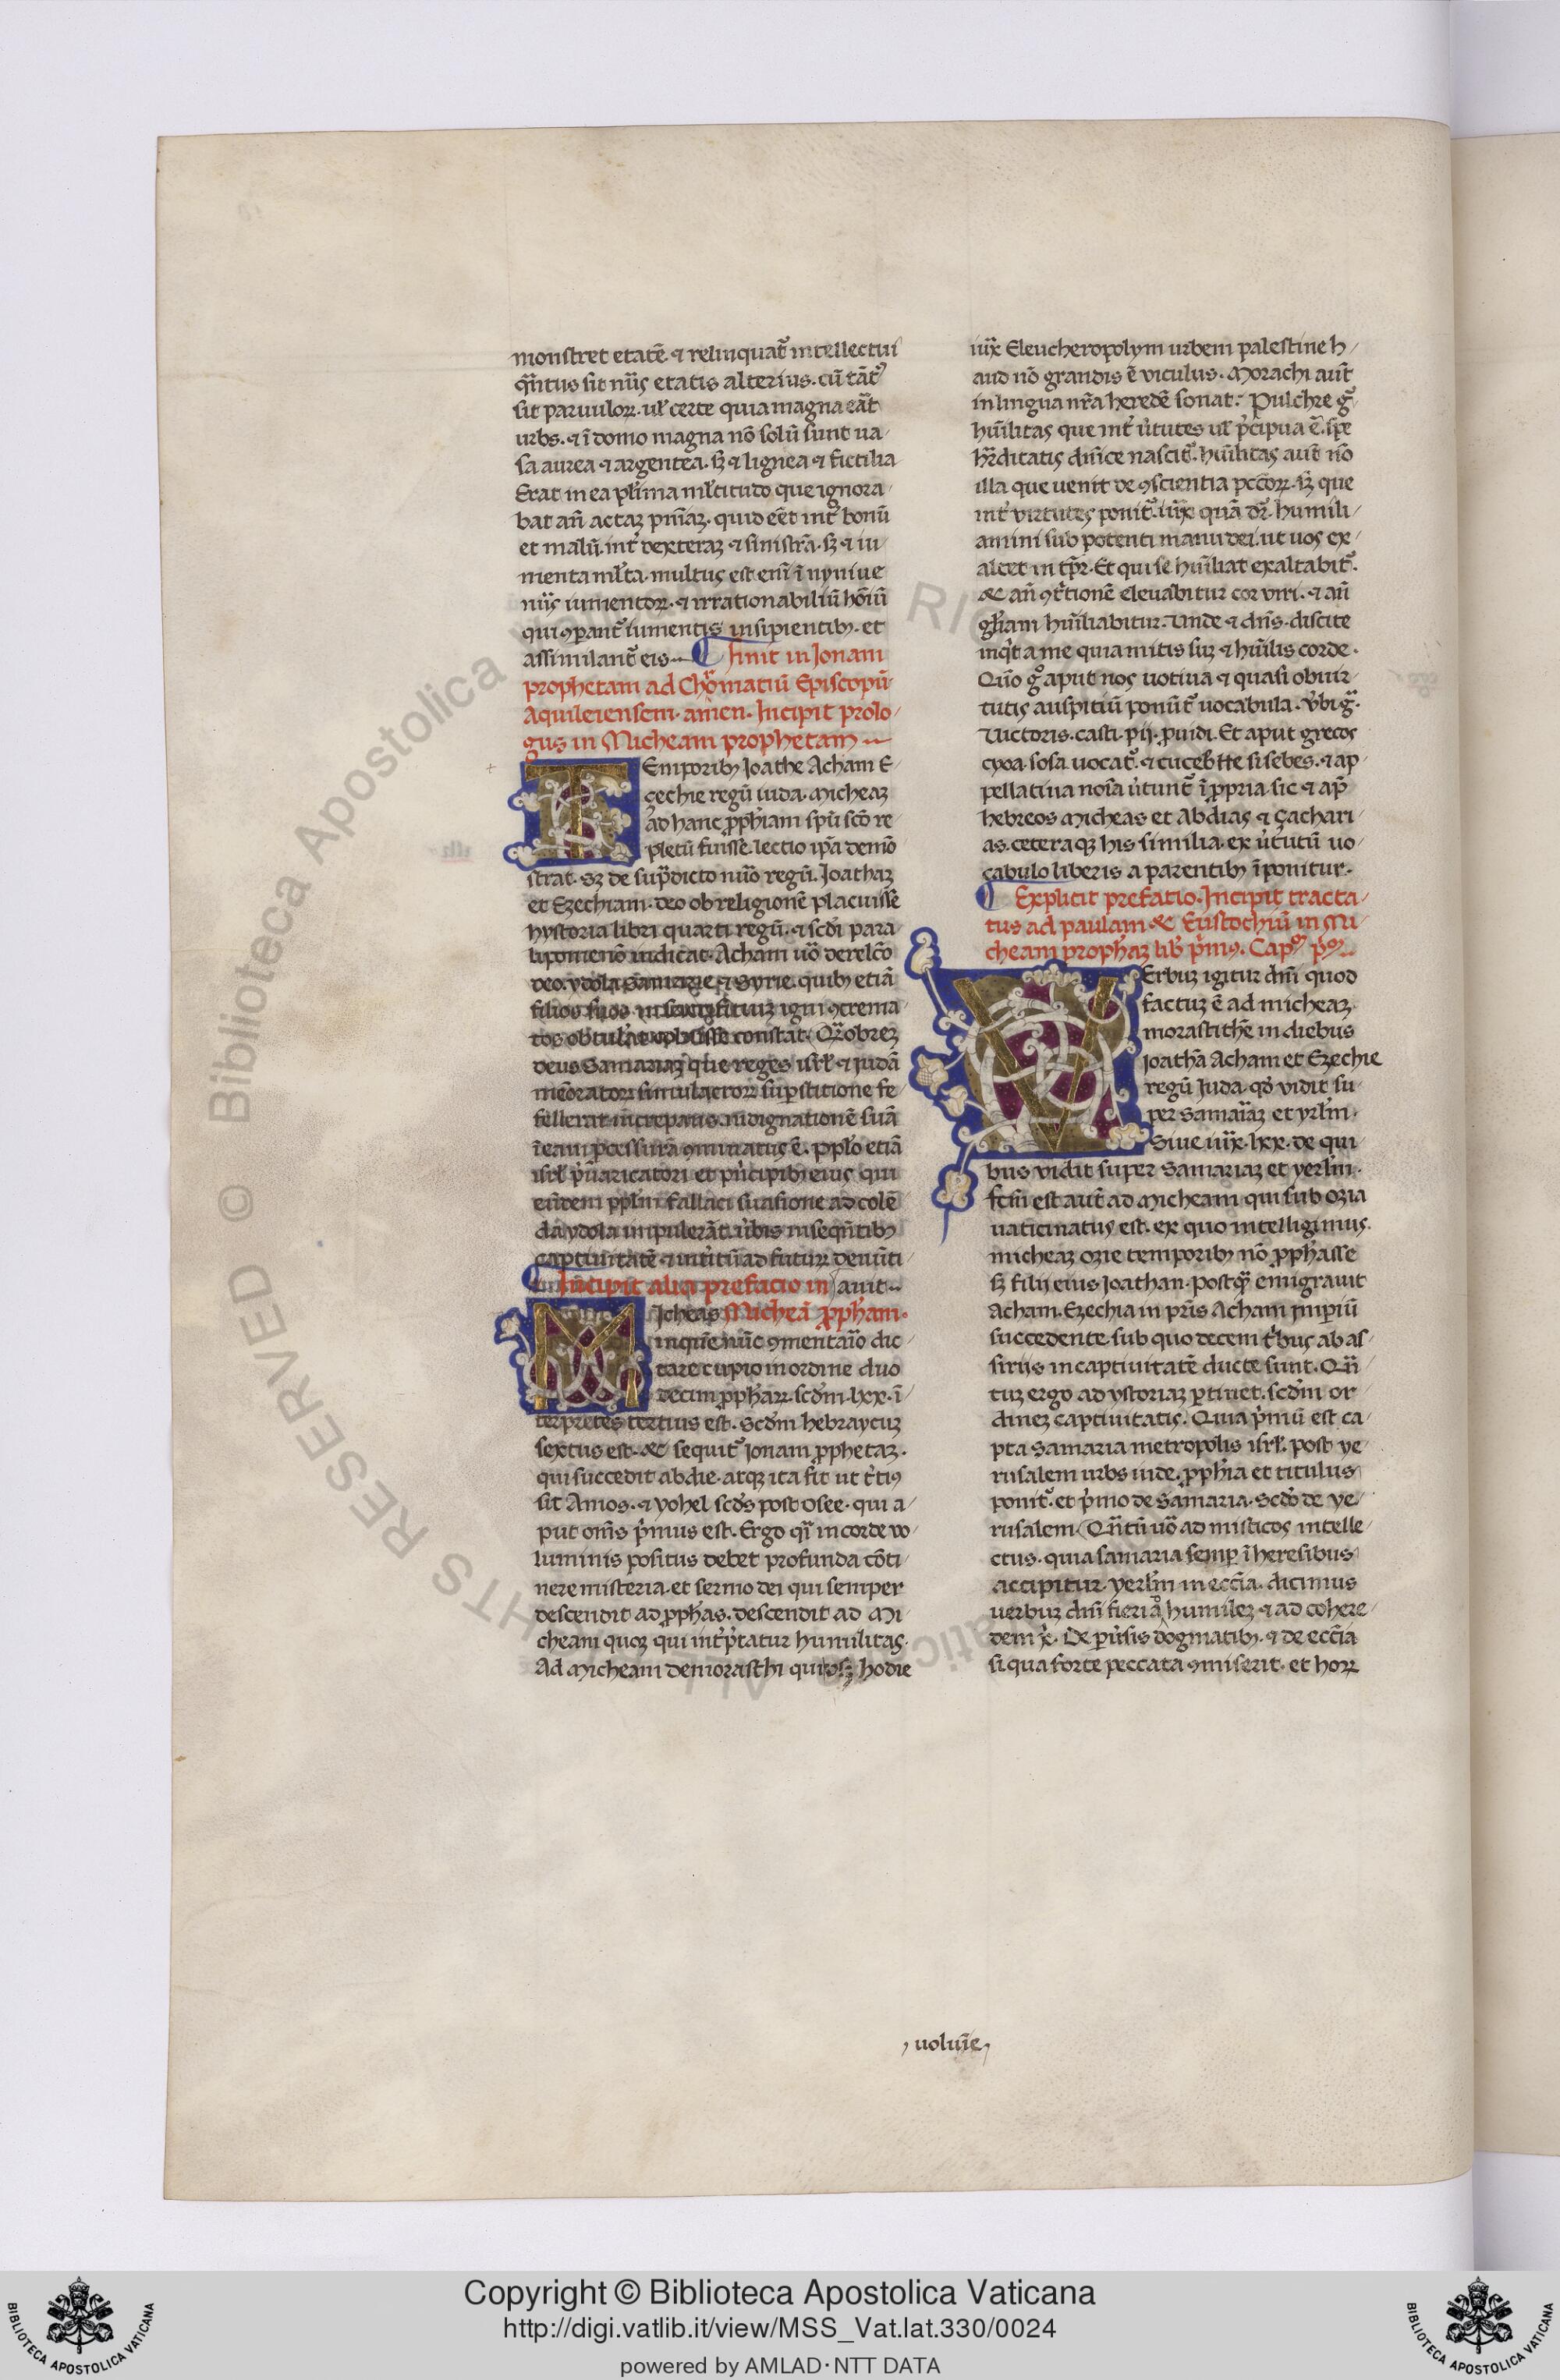 monstret etatē ⁊ relinquat᷑ intellectui
qͣntus sit niīs etatis alterius. cū tāt᷒
sit paruulorꝝ. ul᷑ certe quia magna eāt
urbs. ⁊ ī domo magna nō solū sunt ua/
sa aurea ⁊ argentea. sꝫ ⁊ lignea ⁊ fictilia
Erat in ea plīma ml᷑titudo que ignora/
bat an̄ actaꝫ pn̄iaꝫ. quid eēt int᷑ bonū
et malū. int᷑ dexteraꝫ ⁊ sinistrā. sꝫ ⁊ iu/
menta ml᷑ta. multus est enī ī nyniue
niīs iumentorꝝ. ⁊ irrationabiliū hōiū
qui ꝯparant᷑ iumentis insipientibꝫ. et
assimilant᷑ eis. Finit in Jonam
prophetam ad Chromatiū Episcopū
Aquileiensem. amen. Incipit prolo/
gus in Micheam prophetam
Temporibꝫ Joathe Acham E/
cechie regū iuda. Micheaꝫ
ad hanc ꝓph̄iam spū scō re/
pletū fuisse. lectio ip̄a demō
strat. Sꝫ de sup̄dicto nūo regū. Joathaꝫ
et Ezechiam. deo ob religionē placuisse
hystoria libri quarti regū. ⁊ scd̄i para
lipomenō indicat. Acham uo᷑ derelc̄o
deo. ydola Samarie ⁊ Syrie. quibꝫ etiā
filios suos igni ꝯcrema
constat. Qr̄ obreꝫ
deus Samariaꝫ reges isrl̄ ⁊ Judā
mēoratorꝝ simulacrorꝝ suꝑstitione fe/
fellerat increpans. indignationē suā
ī eam ꝯminatus ē. Ppl̄o etiā
isrl̄ p̄uaricatori et pn̄cipibꝫ eius qui
eūdem ppl̄m fallaci suasione ad colē
da ydola impulerāt. insequētibꝫ
captiuitatē ⁊ int᷑itū ad futurꝝ denūti
Incipit alia prefacio in auit
Micheas Micheā ꝓph̄am.
in quē nūc ꝯmentaīo dic/
tare cupio in ordine duo
decim ꝓph̄arꝝ. scd̄m. lxx. ī
terpretes tertius est. Scd̄m hebraycuꝫ
sextus est. ⁊ sequit᷑ Jonam ꝓphetaꝫ.
qui succedit abdie. atqꝫ ita fit ut t᷑ti᷒
sit Amos. ⁊ yohel scd̄s post osee. qui a/
put om̄s p᷑mus est. Ergo qͥ in corde uo/
luminis positus debet profunda cōti/
nere misteria. et sermo dei qui semper
descendit ad ꝓph̄as. descendit ad Mi/
cheam quoqꝫ qui int᷑p᷑tatur humilitas.
Ad Micheam de morasthi qui hodie
iux̄ Eleucheropolym urbem palestine h/
aud nō grandis ē viculus. Morachi aut᷑
in lingua nr̄a heredē sonat. Pulchre g̊
hūilitas que int᷑ u᷑tutes ul᷑ p᷑cipua ē. spe
hr̄ditatis dn̄ice nascit᷑. hūilitas aut᷑ nō
illa que uenit de ꝯscientia pcc̄orꝝ. sꝫ que
int᷑ virtutes ponit᷑. iux̄ quā dr̄. humili/
amini sub potenti manu dei. ut uos ex/
altet in tp̄r. Et qui se hūiliat exaltabit᷑.
⁊ an̄ ꝯt᷑tionē eleuabitur cor viri. ⁊ an̄
gl᷑iam hūiliabitur. Unde ⁊ dn̄s. discite
inqͥt a me quia mitis suꝫ ⁊ hūilis corde.
Qūo g̊ aput nos uotiua ⁊ quasi ob uir/
tutis auspitiū ponūt᷑ uocabula. v᷑bi gͣ.
Victoris. casti. pij. ꝓuidi. Et aput grecos
⁊ ap
pellatiua noīa u᷑tunt᷑ ī ꝓpria. sic ⁊ ap̄
hebreos Micheas et Abdias ⁊ Çachari/
as. ceteraqꝫ his similia. ex u᷑tutū uo/
cabulo liberis a parentibꝫ īponitur.
Explicit prefatio. Incipit tracta/
tus ad paulam ⁊ Eustochiū in Mi/
cheam prophaꝫ lib᷑ p᷑m᷒. Capᵐ pᵐ
Verbuꝫ igitur dn̄i quod
factuꝫ ē ad micheaꝫ
morastithē in diebus
Joathā Acham et Ezechie
regū Juda. qd᷑ vidit su/
per Samariaꝫ et yrl̄m.
Siue iux̄. lxx. de qui
bus vidit super Samariaꝫ et yerl̄m.
fc̄m est aut᷑ ad Micheam qui sub ozia
uaticinatus est. ex quo intelligimus.
micheaꝫ ozie temporibꝫ nō ꝓph̄asse
sꝫ filij eius Joathan. Postqͣ emigrauit
Acham. Ezechia in pr̄is Acham imperiū
succedente. sub quo decem t᷑bus ab as/
siriis in captiuitatē ducte sunt. Qn̄
tuꝫ ergo ad ystoriaꝫ ꝑtinet. scd̄m or/
dineꝫ captiuitatis. Quia p᷑mū est ca/
pta Samaria metropolis isrl̄. post ye/
rusalem urbs iude. ꝓph̄ia et titulus
ponit᷑. et p᷑mo de Samaria. Scd̄o de ye/
rusalem. Qn̄tū uo᷑ ad misticos intelle/
ctus. quia samaria semꝑ ī heresibus
accipitur. yerl̄m in ecc̄ia. dicimus
uerbuꝫ dn̄i fieri ad humileꝫ ⁊ ad cohere/
dem x̄. De ꝑu᷑sis dogmatibꝫ. ⁊ de ecc̄ia
si qua forte peccata ꝯmiserit. et horꝝ
uoluīe
Copyright © Biblioteca Apostolica Vaticana
http://digi.vatlib.it/view/MSS_Vat.lat.330/0024
powered by AMLAD·NTT DATA